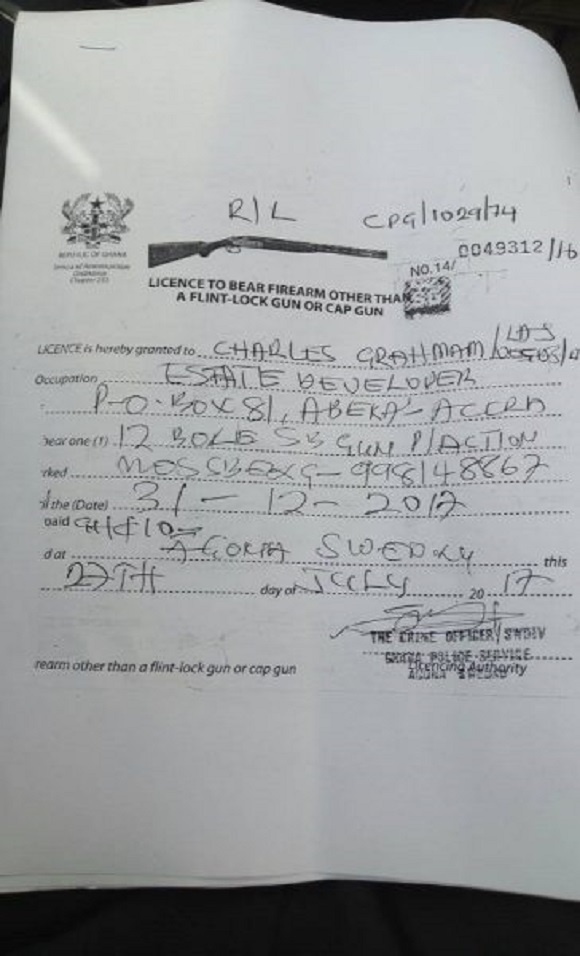 R/L
CPG/1029/74
REPUBLIC OF GHANA
0049312/16
NO.14/
LICENCE TO BEAR FIREARM OTHER THA
A FLINT-LOCK GUN OR CAP GUN
LICENCE is hereby granted to CHARLES GRAHMAM
Occupation ESTATE DEVELOPER
P.O.BOX 81, ABEKA-ACCRA
bear one (1) 12 BORE SB GUN P/ACTION
rked MOSSBERG-998148867
il the (Date) 31-12-2017
paid GH¢10=
d at AGONA SWEDRU this
27TH day of JULY 2017
THE CRIME OFFICER/SWDIV
GHANA POLICE SERVICE
Licencing Authority
AGONA SWEDRU
rearm other than a flint-lock gun or cap gun